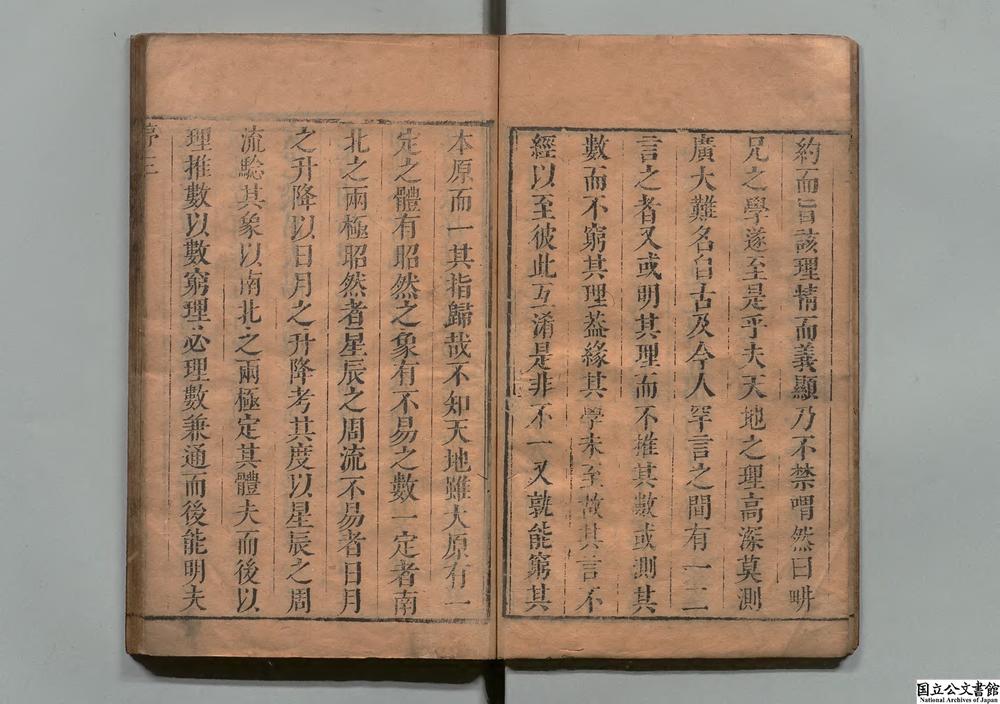 約而旨該理精而義顯乃不禁喟然曰畊
兄之學遂至是乎夫天地之理高深莫測
廣大難名自古及今人罕言之間有一二
言之者又或明其理而不推其數或測其
數而不窮其理葢緣其學未至故其言不
經以至彼此互淆是非不一又孰能窮其
本原而一其指歸哉不知天地雖大原有一
定之體有昭然之象有不易之數一定者南
北之兩極昭然者星辰之周流不易者日月
之升降以日月之升降考其度以星辰之周
流驗其象以南北之兩極定其體夫而後以
理推數以數窮理必理數兼通而後能明夫
國立公文書館
National Archives of Japan